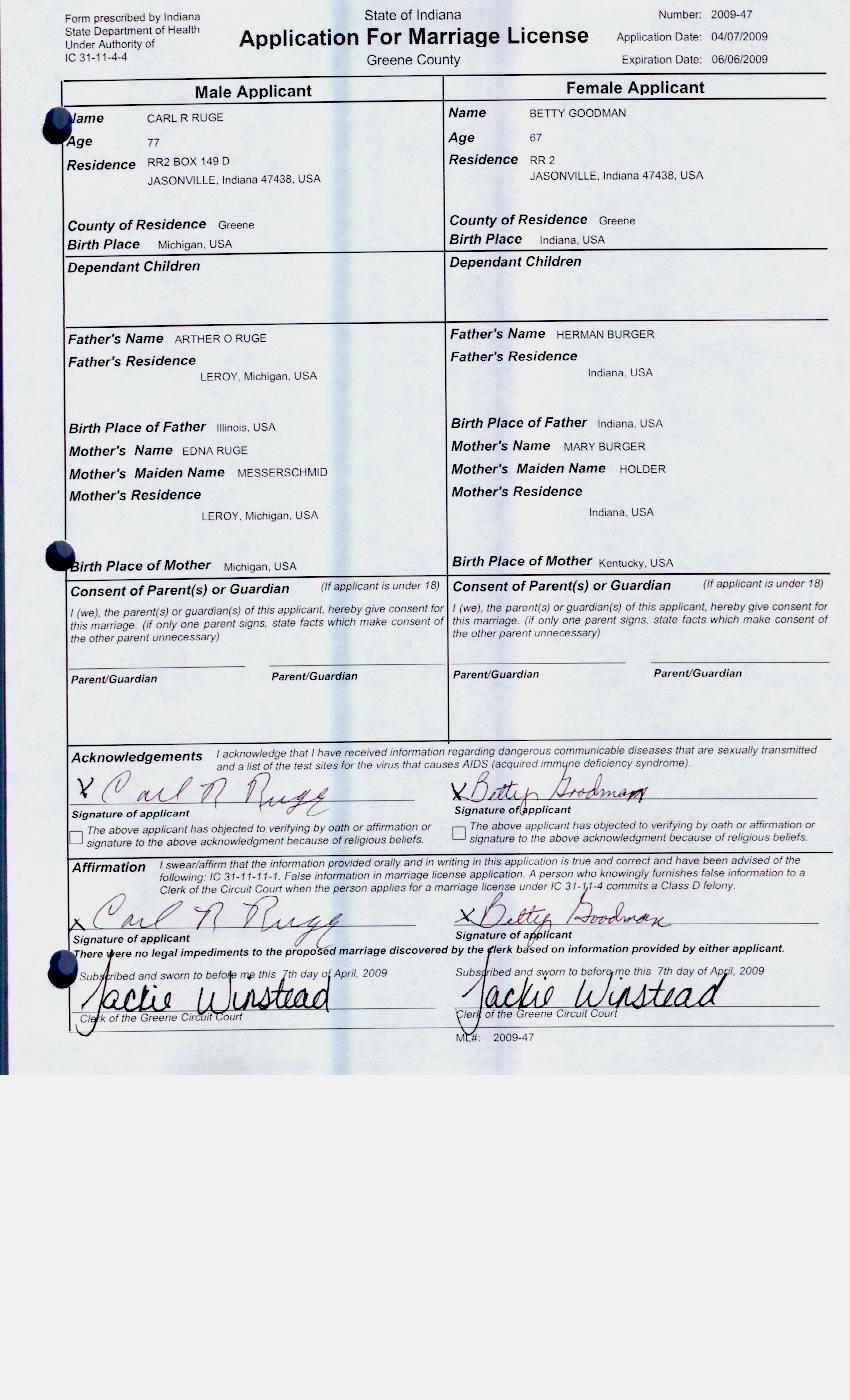 Form prescribed by Indiana
State Department of Health
Under Authority of
IC 31-11-4-4
State of Indiana
Application For Marriage License
Greene County
Number: 2009-47
Application Date: 04/07/2009
Expiration Date: 06/06/2009
Male Applicant
Name CARL R RUGE
Age 77
Residence RR2 BOX 149 D
JASONVILLE, Indiana 47438, USA
County of Residence Greene
Birth Place Michigan, USA
Dependant Children
Father's Name ARTHER O RUGE
Father's Residence
LEROY, Michigan, USA
Birth Place of Father Illinois, USA
Mother's Name EDNA RUGE
Mother's Maiden Name MESSERSCHMID
Mother's Residence
LEROY, Michigan, USA
Birth Place of Mother Michigan, USA
Consent of Parent(s) or Guardian (If applicant is under 18)
I (we), the parent(s) or guardian(s) of this applicant, hereby give consent for
this marriage. (if only one parent signs, state facts which make consent of
the other parent unnecessary)
Parent/Guardian Parent/Guardian
Female Applicant
Name BETTY GOODMAN
Age 67
Residence RR 2
JASONVILLE, Indiana 47438, USA
County of Residence Greene
Birth Place Indiana, USA
Dependant Children
Father's Name HERMAN BURGER
Father's Residence
Indiana, USA
Birth Place of Father Indiana, USA
Mother's Name MARY BURGER
Mother's Maiden Name HOLDER
Mother's Residence
Indiana, USA
Birth Place of Mother Kentucky, USA
Consent of Parent(s) or Guardian (If applicant is under 18)
I (we), the parent(s) or guardian(s) of this applicant, hereby give consent for
this marriage. (if only one parent signs, state facts which make consent of
the other parent unnecessary)
Parent/Guardian Parent/Guardian
Acknowledgements I acknowledge that I have received information regarding dangerous communicable diseases that are sexually transmitted
and a list of the test sites for the virus that causes AIDS (acquired immune deficiency syndrome).
X Carl R Ruge X Betty Goodman
Signature of applicant Signature of applicant
The above applicant has objected to verifying by oath or affirmation or
signature to the above acknowledgment because of religious beliefs.
The above applicant has objected to verifying by oath or affirmation or
signature to the above acknowledgment because of religious beliefs.
Affirmation I swear/affirm that the information provided orally and in writing in this application is true and correct and have been advised of the
following: IC 31-11-11-1. False information in marriage license application. A person who knowingly furnishes false information to a
Clerk of the Circuit Court when the person applies for a marriage license under IC 31-11-4 commits a Class D felony.
X Carl R Ruge X Betty Goodman
Signature of applicant Signature of applicant
There were no legal impediments to the proposed marriage discovered by the clerk based on information provided by either applicant.
Subscribed and sworn to before me this 7th day of April, 2009
Jackie Winstead
Clerk of the Greene Circuit Court
Subscribed and sworn to before me this 7th day of April, 2009
Jackie Winstead
Clerk of the Greene Circuit Court
ML#: 2009-47